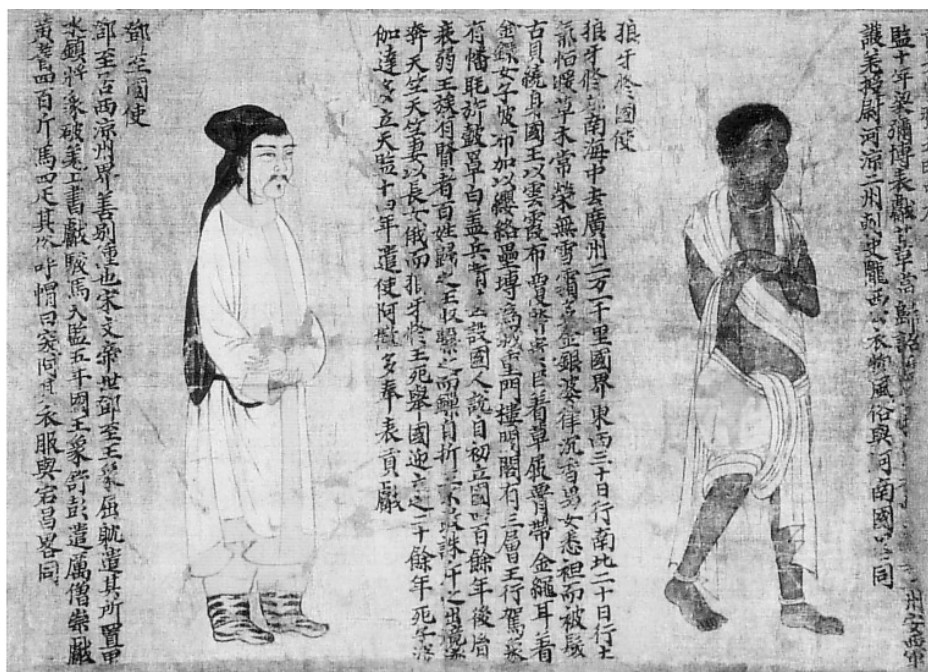 州安西軍
監十年梁彌博表獻甘草當歸詔
護羌授尉河涼二州刺史隴西公衣物風俗與河南國同
狼牙脩國使
狼牙脩南海中去廣州二万一千里國界東西三十日行南北二十日行土
氣恒暖草木常榮無雪霜多金銀婆律沉香男女悉袒而被髮
古貝繞身國王以雲霞布覆脊貴臣着草屐脅帶金繩耳着
金鐶女子被布加以纓絡壘塼為城重門樓閣有三層王行駕象
有幡毦旍鼓罩白盖兵設國人說自初立國四百餘年後胤
衰弱王族有賢者百姓歸之王収之而鏁自折不敢誅斥之出境遂
奔天竺天竺妻以長女俄而狼牙脩王死舉國迎立之二十餘年死子婆
伽達多立天監十四年遣使阿撤多奉表貢獻
鄧至國使
鄧至居西涼州界羌別種也宋文帝世鄧至王象屈躭遣其所置里
水鎮將象破羌上書獻駿馬天監五年國王象舒彭遣厲僧崇獻
黃耆四百斤馬四疋其俗呼帽曰突何其衣服與宕昌畧同